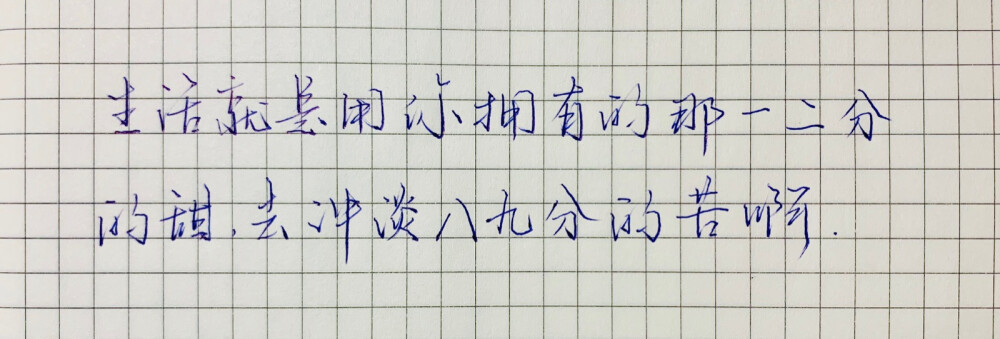 生活就是用你拥有的那一二分
的甜,去冲淡八九分的苦啊.